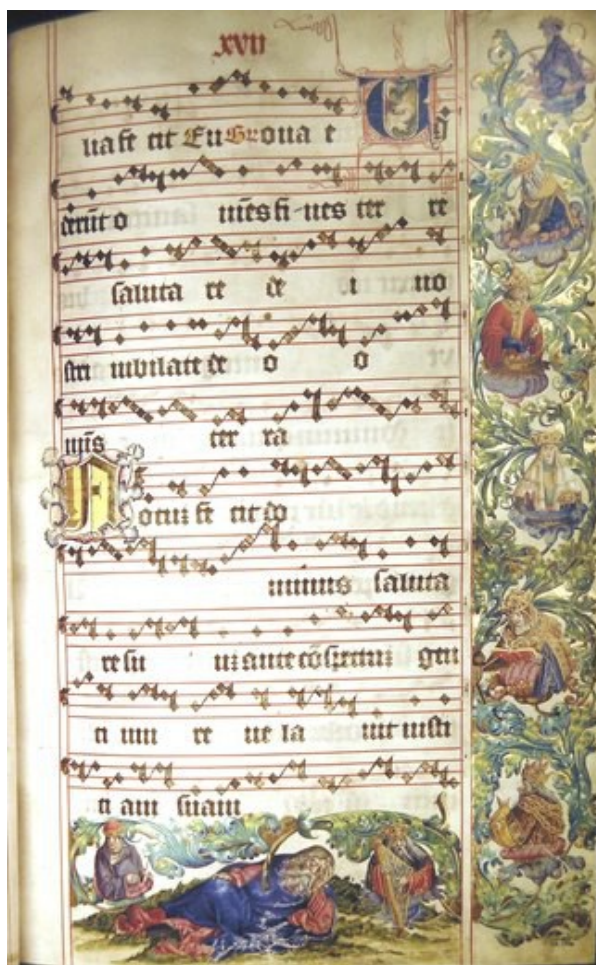 xvii
ua fe cit Eu Gr oua e Vi
derūt o mēs fi-nes ter re
saluta re de i no
stri iubilate de o o
mīs ter ra
Notuȝ fe cit do
minus saluta
re su uȝ ante cōspectuȝ gen
ti um re ue la uit iusti
ti am suam